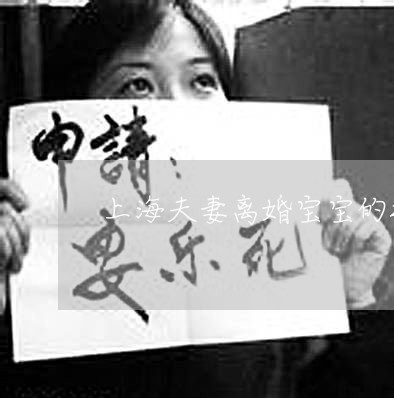 申請：
上海夫妻离婚宝宝的
要乐死